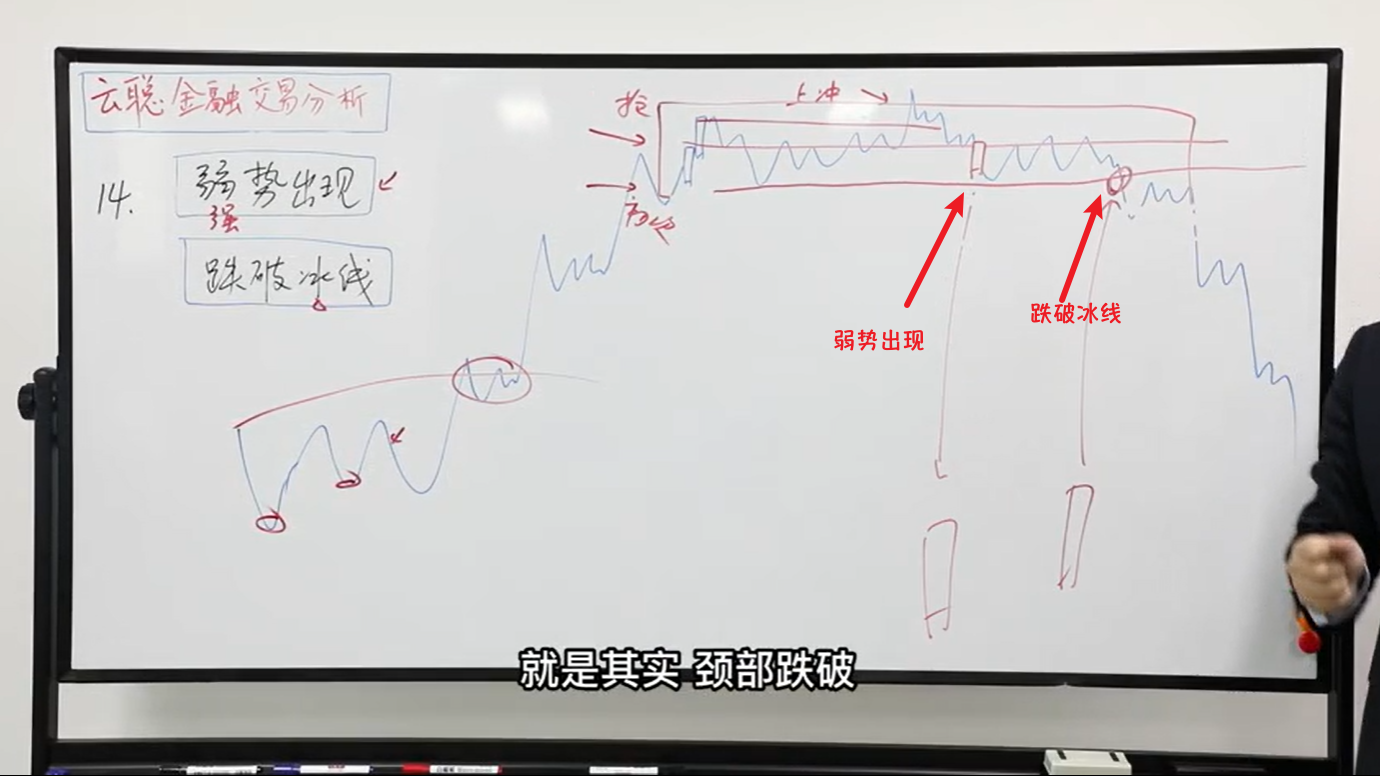 云聪金融交易分析
14.
弱势出现
强
跌破冰线
抢
上冲
弱势出现
跌破冰线
就是其实 颈部跌破